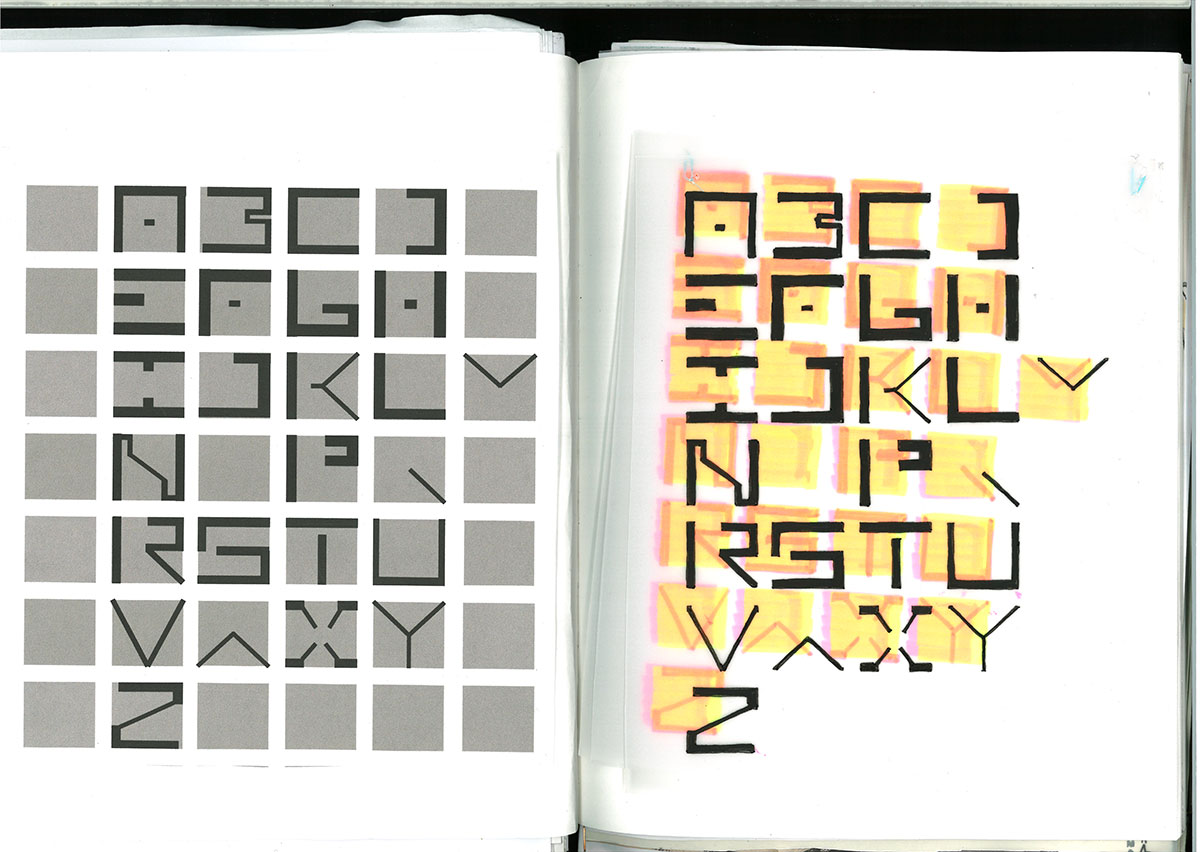 A B C D
E F G H
I J K L M
N O P Q
R S T U
V W X Y
Z
A B C D
E F G H
I J K L M
N O P Q
R S T U
V W X Y
Z